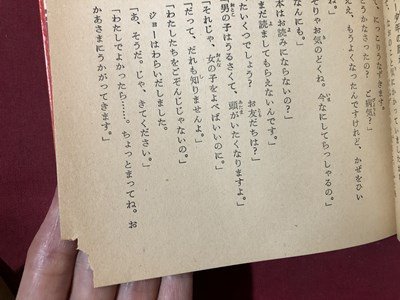 うなずきます。
どうかなさったの？ ご病気？」
ええ、もうよくなったんですけれど、かぜをひい
そりゃお気のどくね。今なにしてらっしゃるの。」
なんにも。」
本はお読みにならないの？」
まだ読ましてもらえないんです。」
たいくつでしょう？ お友だちは？」
男の子はうるさくて、頭がいたくなりますよ。」
「それじゃ、女の子をよべばいいのに。」
「だって、だれも知りませんよ。」
「わたしたちをごぞんじじゃないの。」
ジョーはわらいだしました。
「あ、そうだ。じゃ、きてください。」
「わたしでよかったら……。ちょっとまってね。お
かあさまにうかがってきます。」